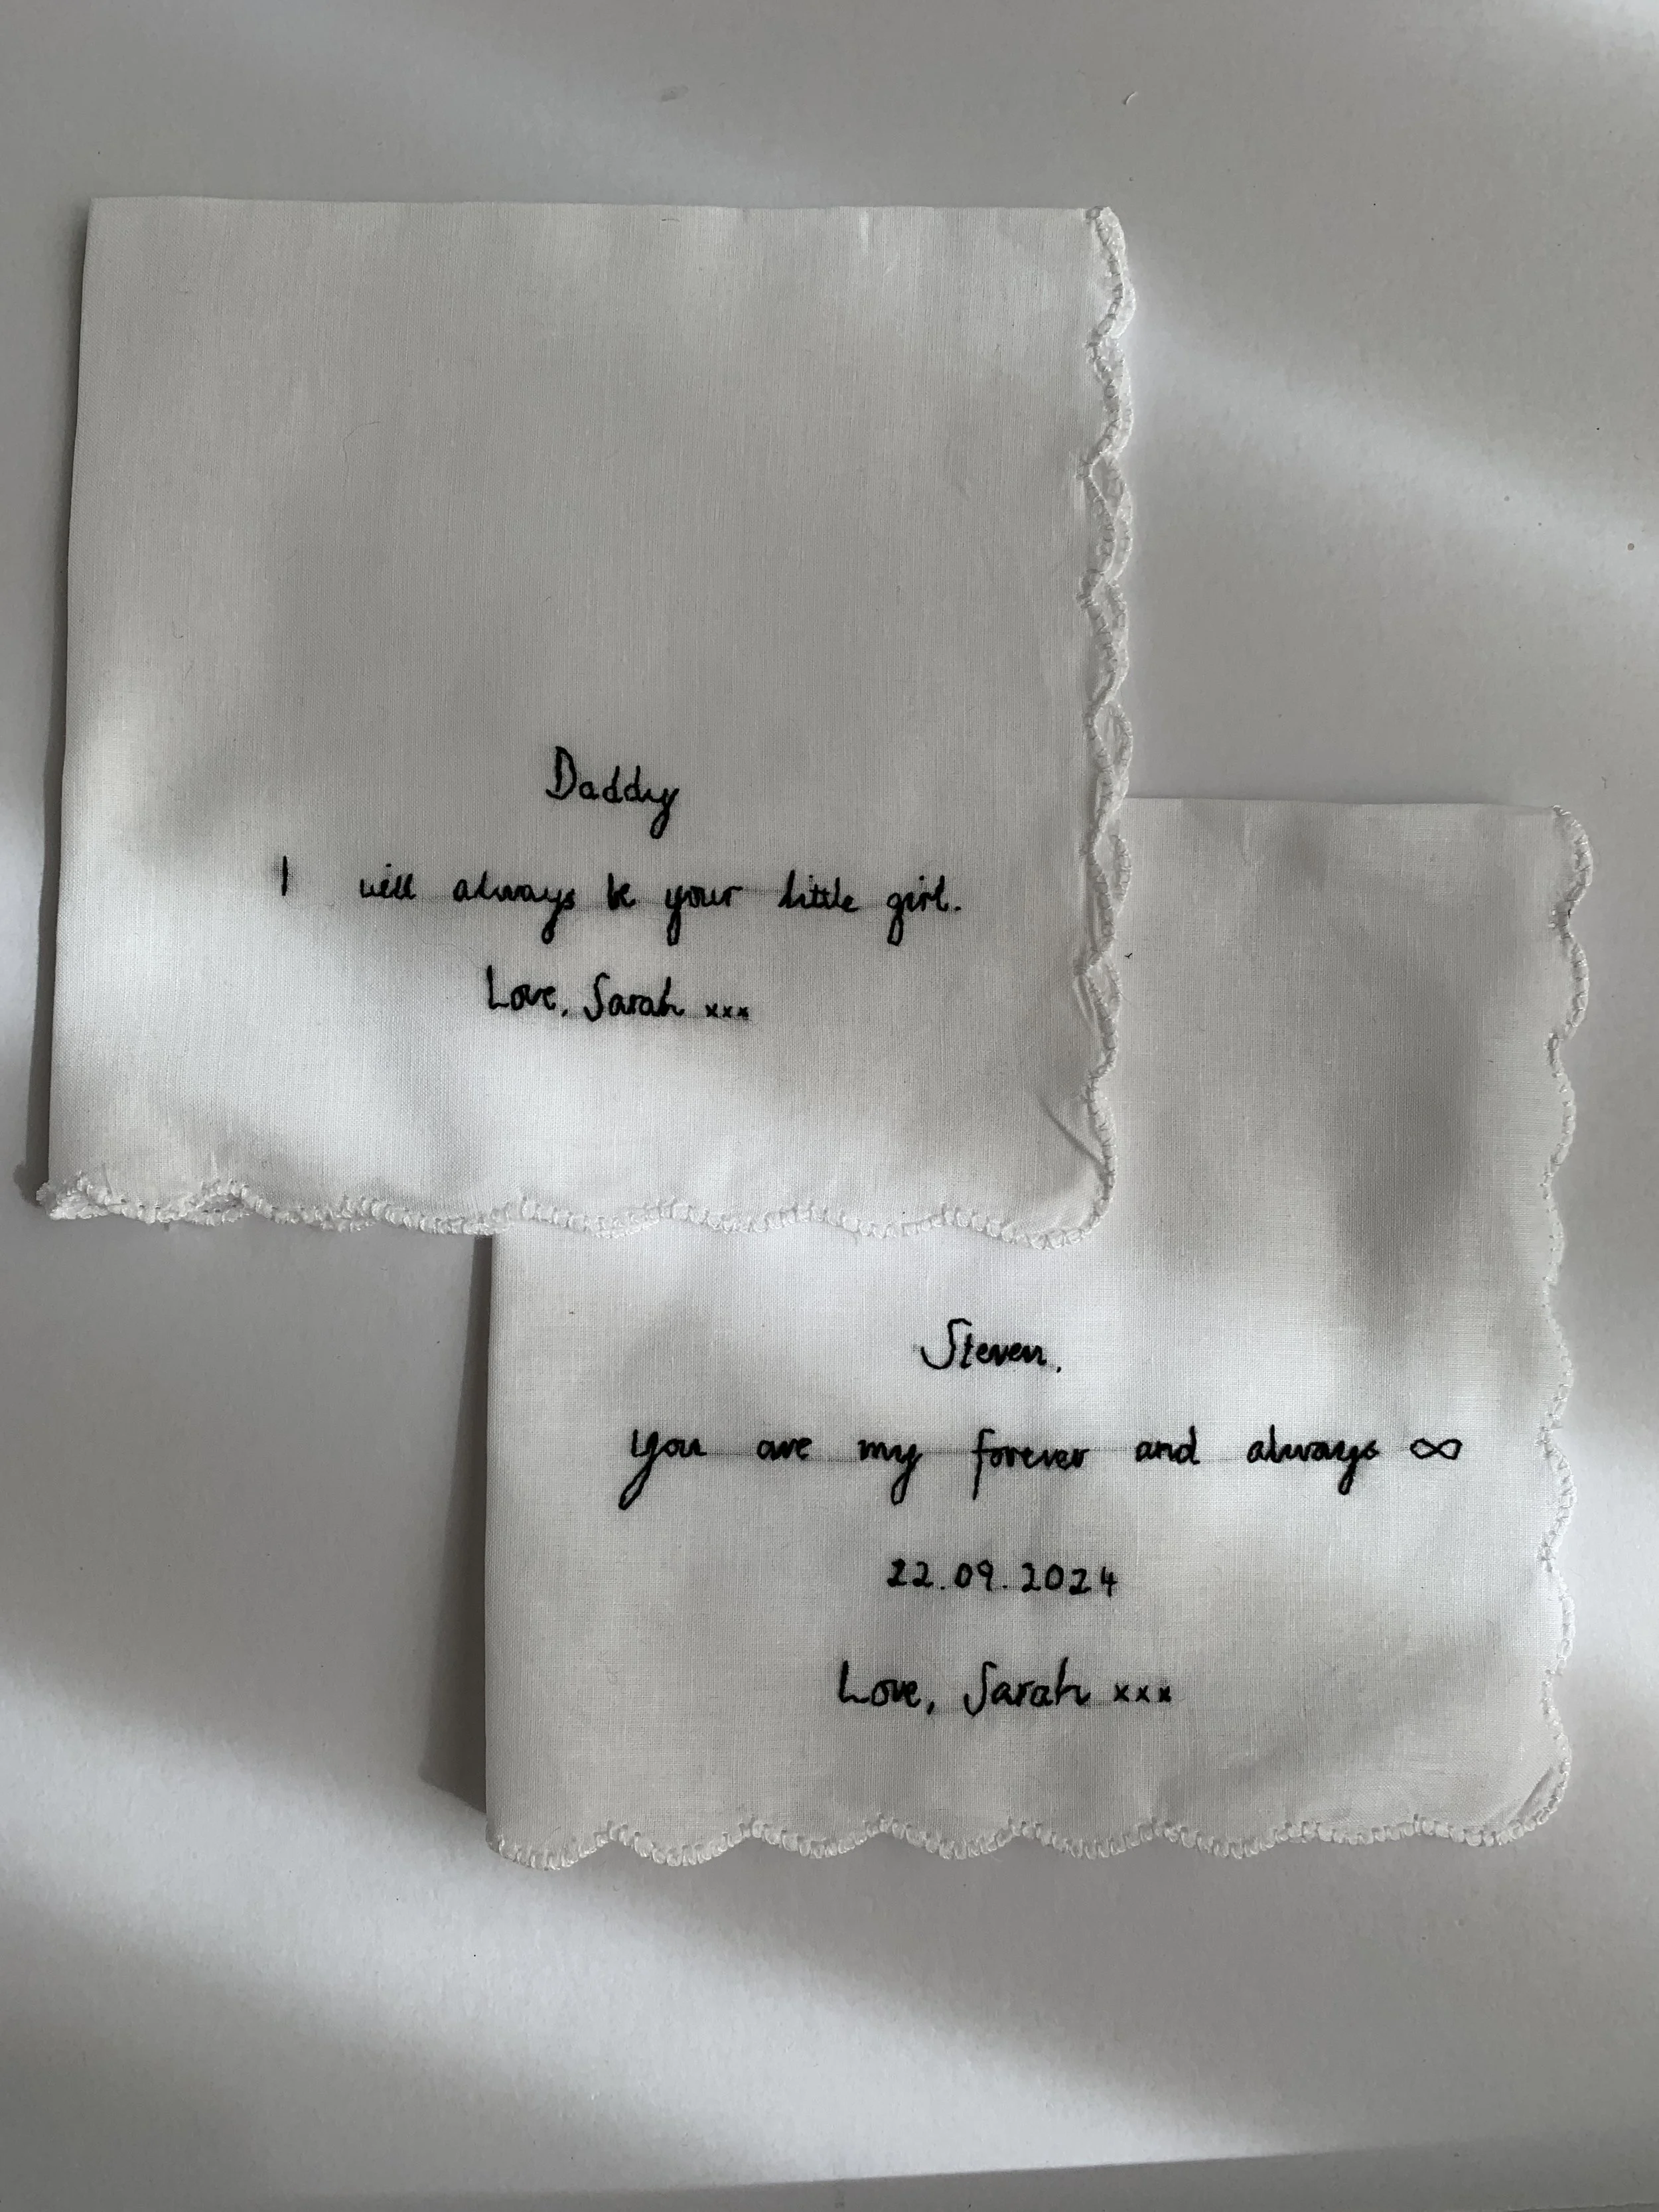 Daddy
I will always be your little girl.
Love, Sarah xxx
Steven,
you are my forever and always ∞
22.09.2024
Love, Sarah xxx